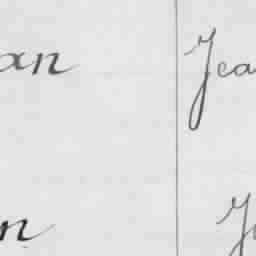 an Jea
n J